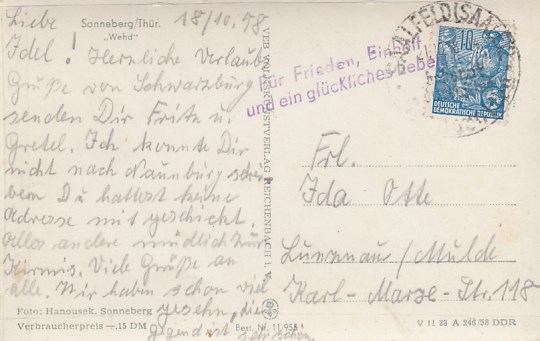 Sonneberg/Thür.
„Wehd"
18/10.58
Liebe
Idel! Herzliche Verlaub
Grüße von Schwarzburg
senden Dir Fritz u.
Gretel. Ich konnte Dir
nicht nach Naunburg schrei
bem Du hattest keine
Adresse mit geschickt.
Alles andere mündlich zur
Kirmis. Viele Grüße an
alle. Wir haben schon viel
gesehn, die
Gegend ist sehr schön.
Foto: Hanousek, Sonneberg
Verbraucherpreis —.15 DM
Best. Nr. 11 955
VEB VOLKSKUNSTVERLAG REICHENBACH i. V.
Für Frieden, Einheit
und ein glückliches Leben
SAALFELD (SAALE)
10
DEUTSCHE
DEMOKRATISCHE REPUBLIK
Frl.
Ida Otte
Lunzenau/Mulde
Karl-Marx-Str. 118
V 11 28 A 246/58 DDR